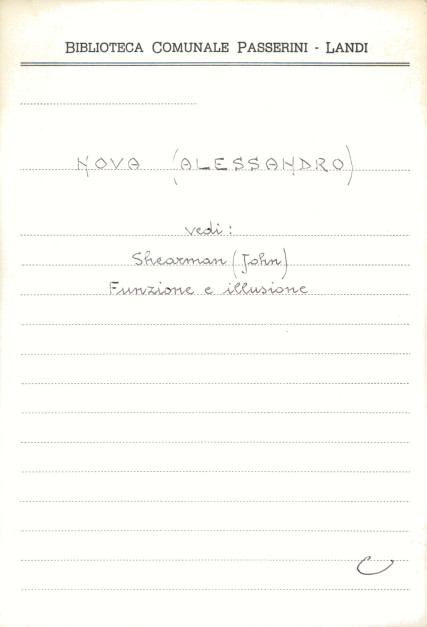 BIBLIOTECA COMUNALE PASSERINI - LANDI
NOVA (ALESSANDRO)
vedi:
Shearman (John)
Funzione e illusione
C